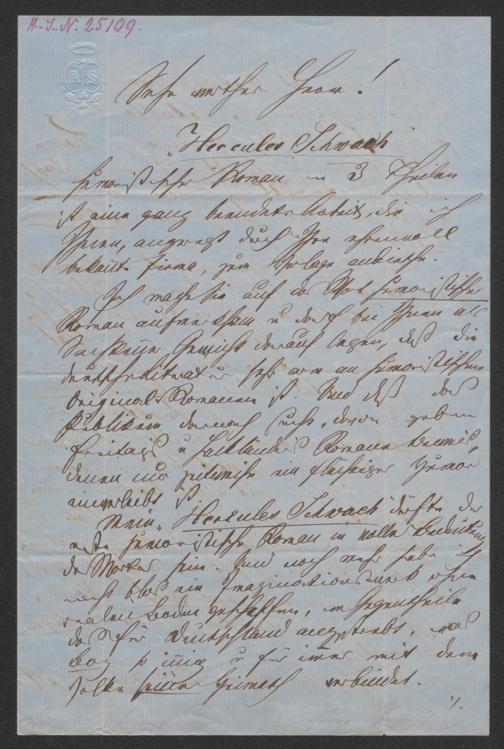 H. I. N. 25109.
Sehr werther Herr!
"Hercules Schwach"
humoristischer Roman in 3 Theilen
ist eine ganz beendete Arbeit, die ich
Ihnen, angeregt durch Ihre ehrenvoll
bekannte Firma, zum Verlage anbiete.
Ich mache Sie auf das Wort humoristischer
Roman aufmerksam u darf bei Ihnen als
Gewicht darauf legen, daß die
deutsche Literatur sehr arm an humoristischen
Original Romanen ist. Und daß das
Publikum darnach sucht, davon geben
Freitags u Hackländers Romane Beweis,
denen nur zeitweise ein Humor
einverleibt ist.
Mein "Hercules Schwach" dürfte der
erste humoristische Roman in voller Bedeutung
des Wortes sein. Und noch mehr habe ich
nicht blos ein Imaginationswerk ohne
realen Boden geschaffen, im Gegentheile
das Deutschland angestrebt, was
so innig u für immer mit dem
Volke seiner Heimath verbindet.
./.